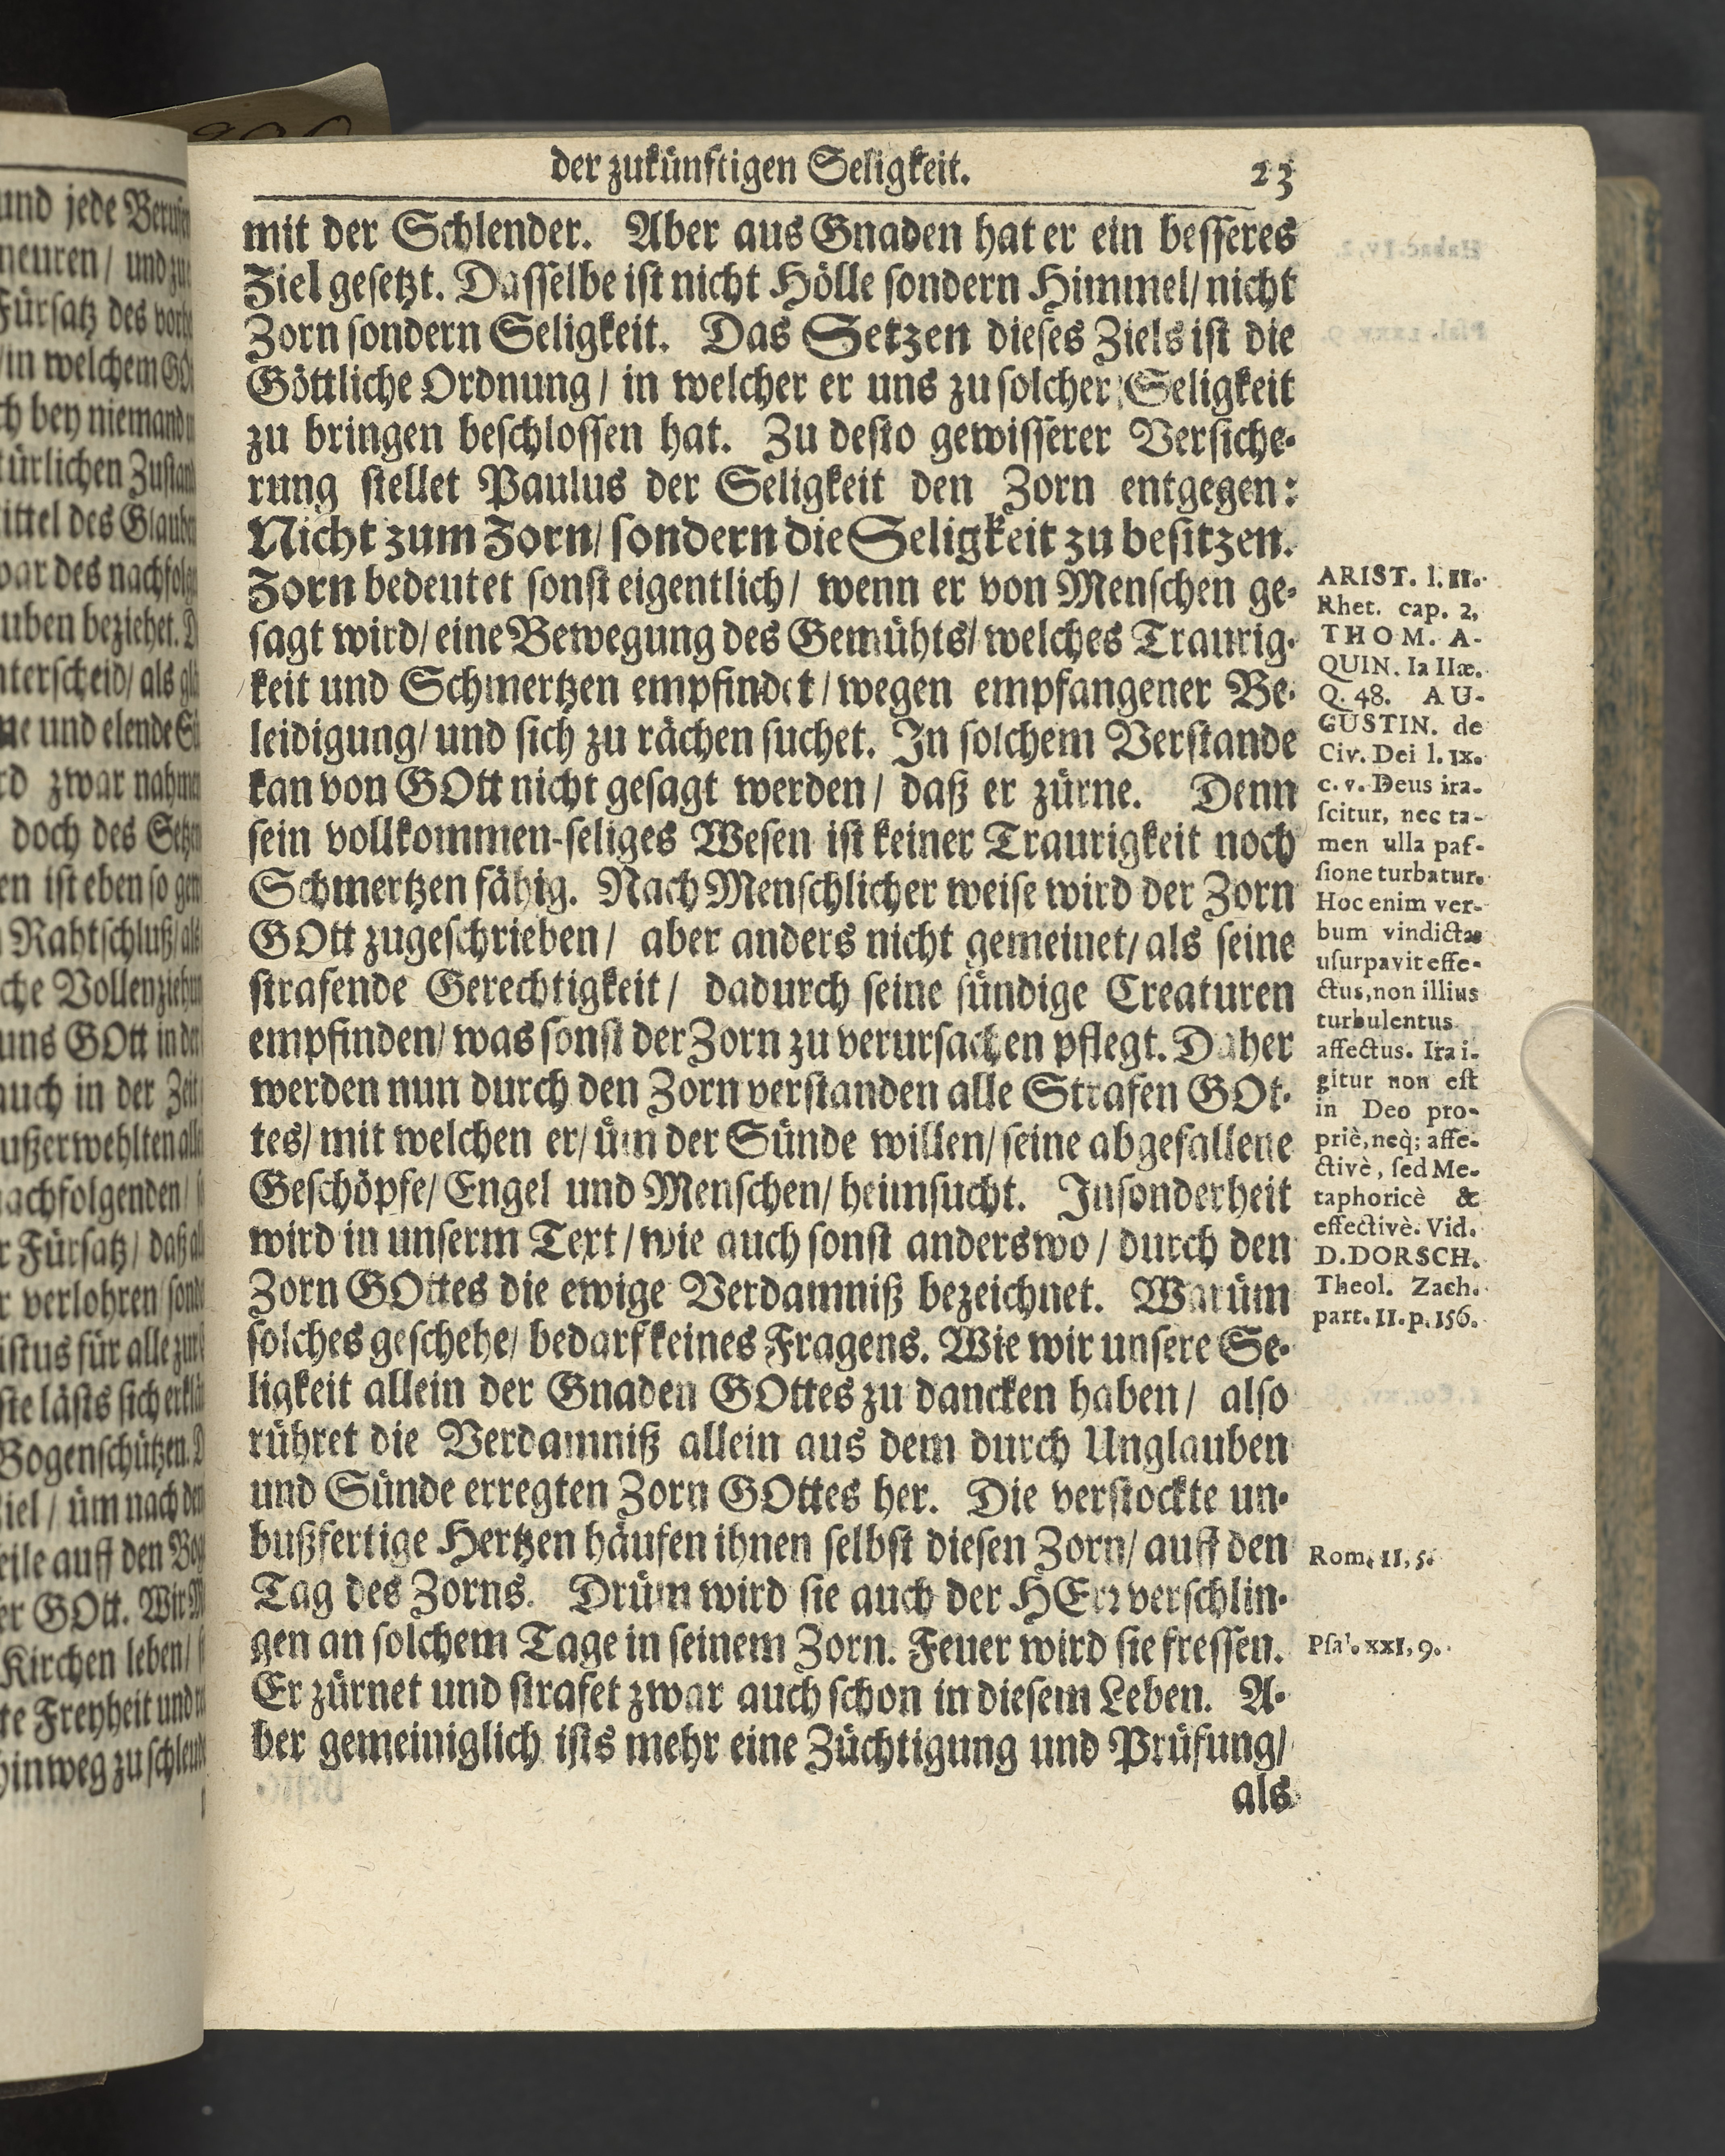 der zukünftigen Seligkeit. 23
mit der Schlender. Aber aus Gnaden hat er ein besseres
Ziel gesetzt. Dasselbe ist nicht Hölle sondern Himmel/ nicht
Zorn sondern Seligkeit. Das Setzen dieses Ziels ist die
Göttliche Ordnung/ in welcher er uns zu solcher Seligkeit
zu bringen beschlossen hat. Zu desto gewisserer Versiche-
rung stellet Paulus der Seligkeit den Zorn entgegen:
Nicht zum Zorn/ sondern die Seligkeit zu besitzen.
Zorn bedeutet sonst eigentlich/ wenn er von Menschen ge-
sagt wird/ eine Bewegung des Gemühts/ welches Traurig-
keit und Schmertzen empfindet/ wegen empfangener Be-
leidigung/ und sich zu rächen suchet. In solchem Verstande
kan von GOtt nicht gesagt werden/ daß er zürne. Denn
sein vollkommen-seliges Wesen ist keiner Traurigkeit noch
Schmertzen fähig. Nach Menschlicher weise wird der Zorn
GOtt zugeschrieben/ aber anders nicht gemeinet/ als seine
strafende Gerechtigkeit/ dadurch seine sündige Creaturen
empfinden/ was sonst der Zorn zu verursachen pflegt. Daher
werden nun durch den Zorn verstanden alle Strafen GOt-
tes/ mit welchen er/ üm der Sünde willen/ seine abgefallene
Geschöpfe/ Engel und Menschen/ heimsucht. Insonderheit
wird in unserm Text/ wie auch sonst anderswo/ durch den
Zorn GOttes die ewige Verdamniß bezeichnet. Warüm
solches geschehe/ bedarf keines Fragens. Wie wir unsere Se-
ligkeit allein der Gnaden GOttes zu dancken haben/ also
rühret die Verdamniß allein aus dem durch Unglauben
und Sünde erregten Zorn GOttes her. Die verstockte un-
bußfertige Hertzen häufen ihnen selbst diesen Zorn/ auff den
Tag des Zorns. Drüm wird sie auch der HErr verschlin-
gen an solchem Tage in seinem Zorn. Feuer wird sie fressen.
Er zürnet und strafet zwar auch schon in diesem Leben. A-
ber gemeiniglich ists mehr eine Züchtigung und Prüfung/
als
ARIST. l. II.
Rhet. cap. 2.
THOM. A-
QUIN. Ia IIæ.
Q. 48. AU-
GUSTIN. de
Civ. Dei l. IX.
c. v. Deus ira-
scitur, nec ta-
men ulla pas-
sione turbatur.
Hoc enim ver-
bum vindictæ
usurpavit effe-
ctus, non illius
turbulentus
affectus. Ira i-
gitur non est
in Deo pro-
priè, neq; affe-
ctivè, sed Me-
taphoricè &
effectivè. Vid.
D. DORSCH.
Theol. Zach.
part. II. p. 156.
Rom. II, 5.
Psal. XXI, 9.